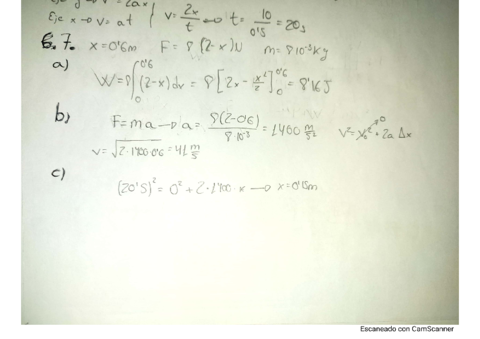 Eje x → v = at } v = 2x/t ↔ t = 10/0'5 = 20s
7. x = 0'6m F = 8 (2-x)N m = 8·10⁻³Kg
a)
W = 8∫₀^0'6 (2-x)dx = 8[2x - x²/2]₀^0'6 = 8'16J
b)
F = ma → a = 8(2-0'6)/8·10⁻³ = 1400 m/s² v² = v₀²→0 + 2a Δx
v = √2·1400·0'6 = 41 m/s
c)
(20'5)² = 0² + 2·1400·x → x = 0'15m
Escaneado con CamScanner